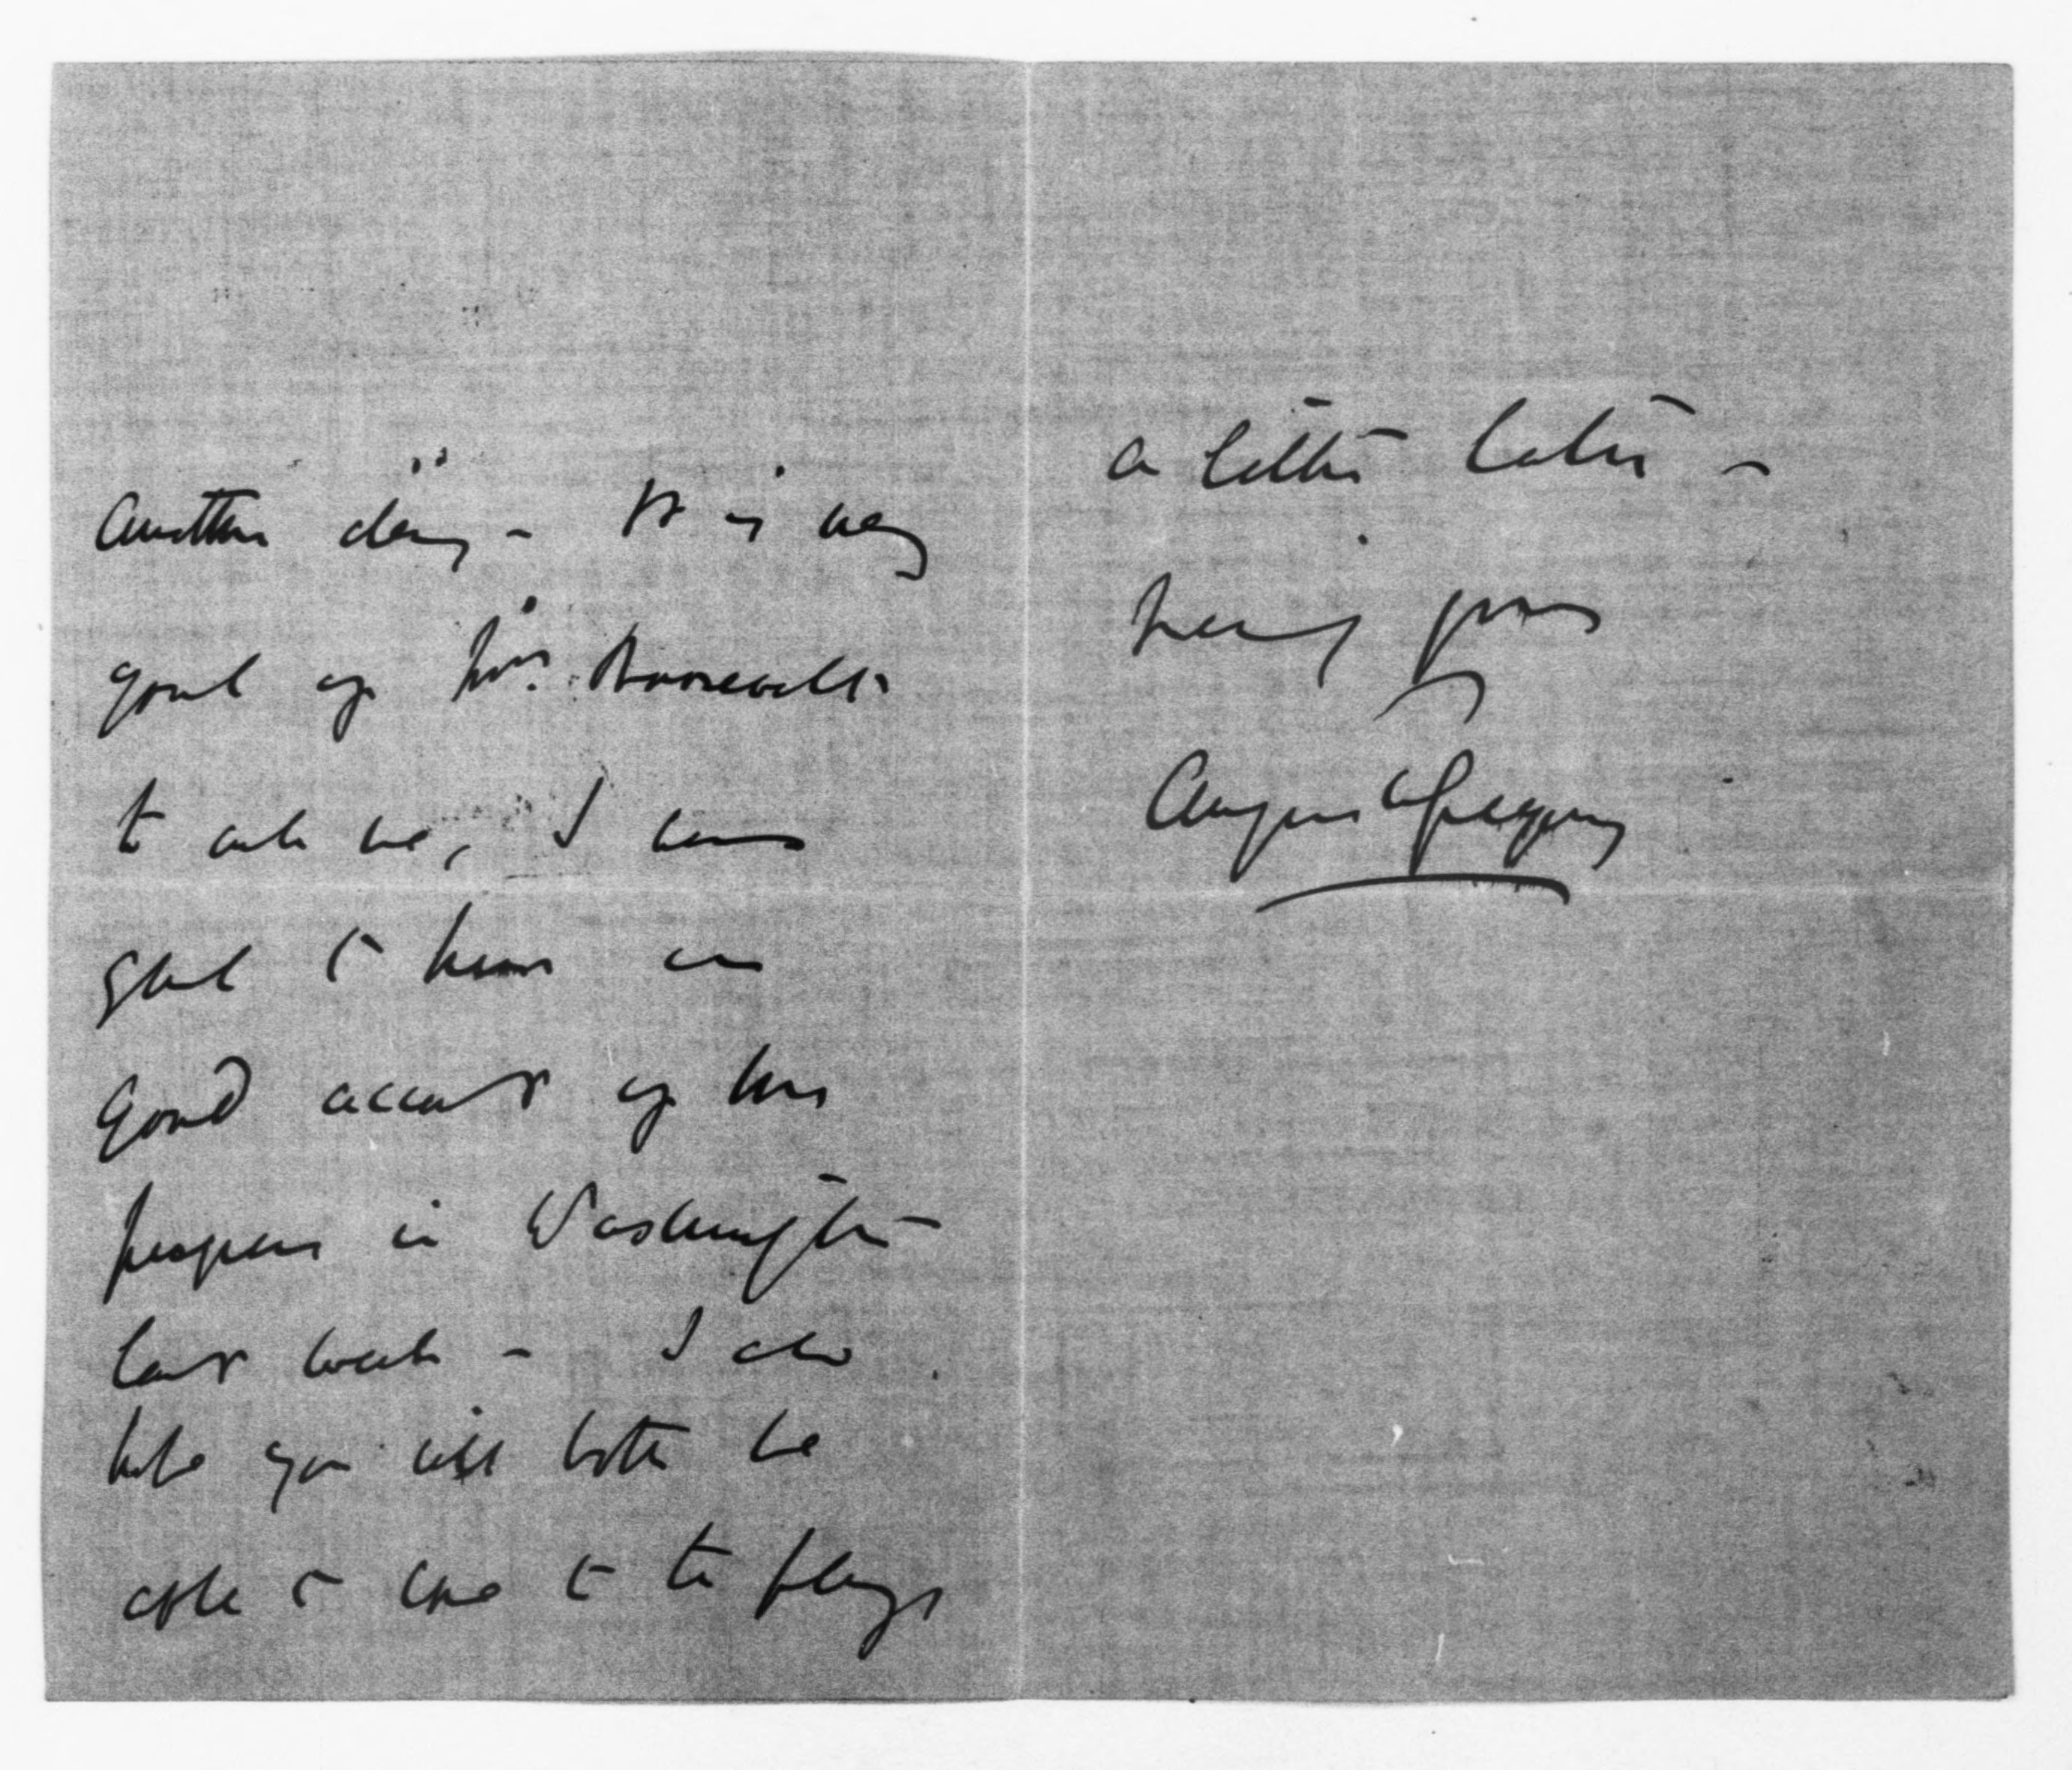 another day - It is very
good of Mrs. Roosevelt
to ask me, I was
glad to hear an
good account of her
in Washington
last week - I do
hope you will both be
able to come to the plays
a little later -
Very yours
Augusta Gregory